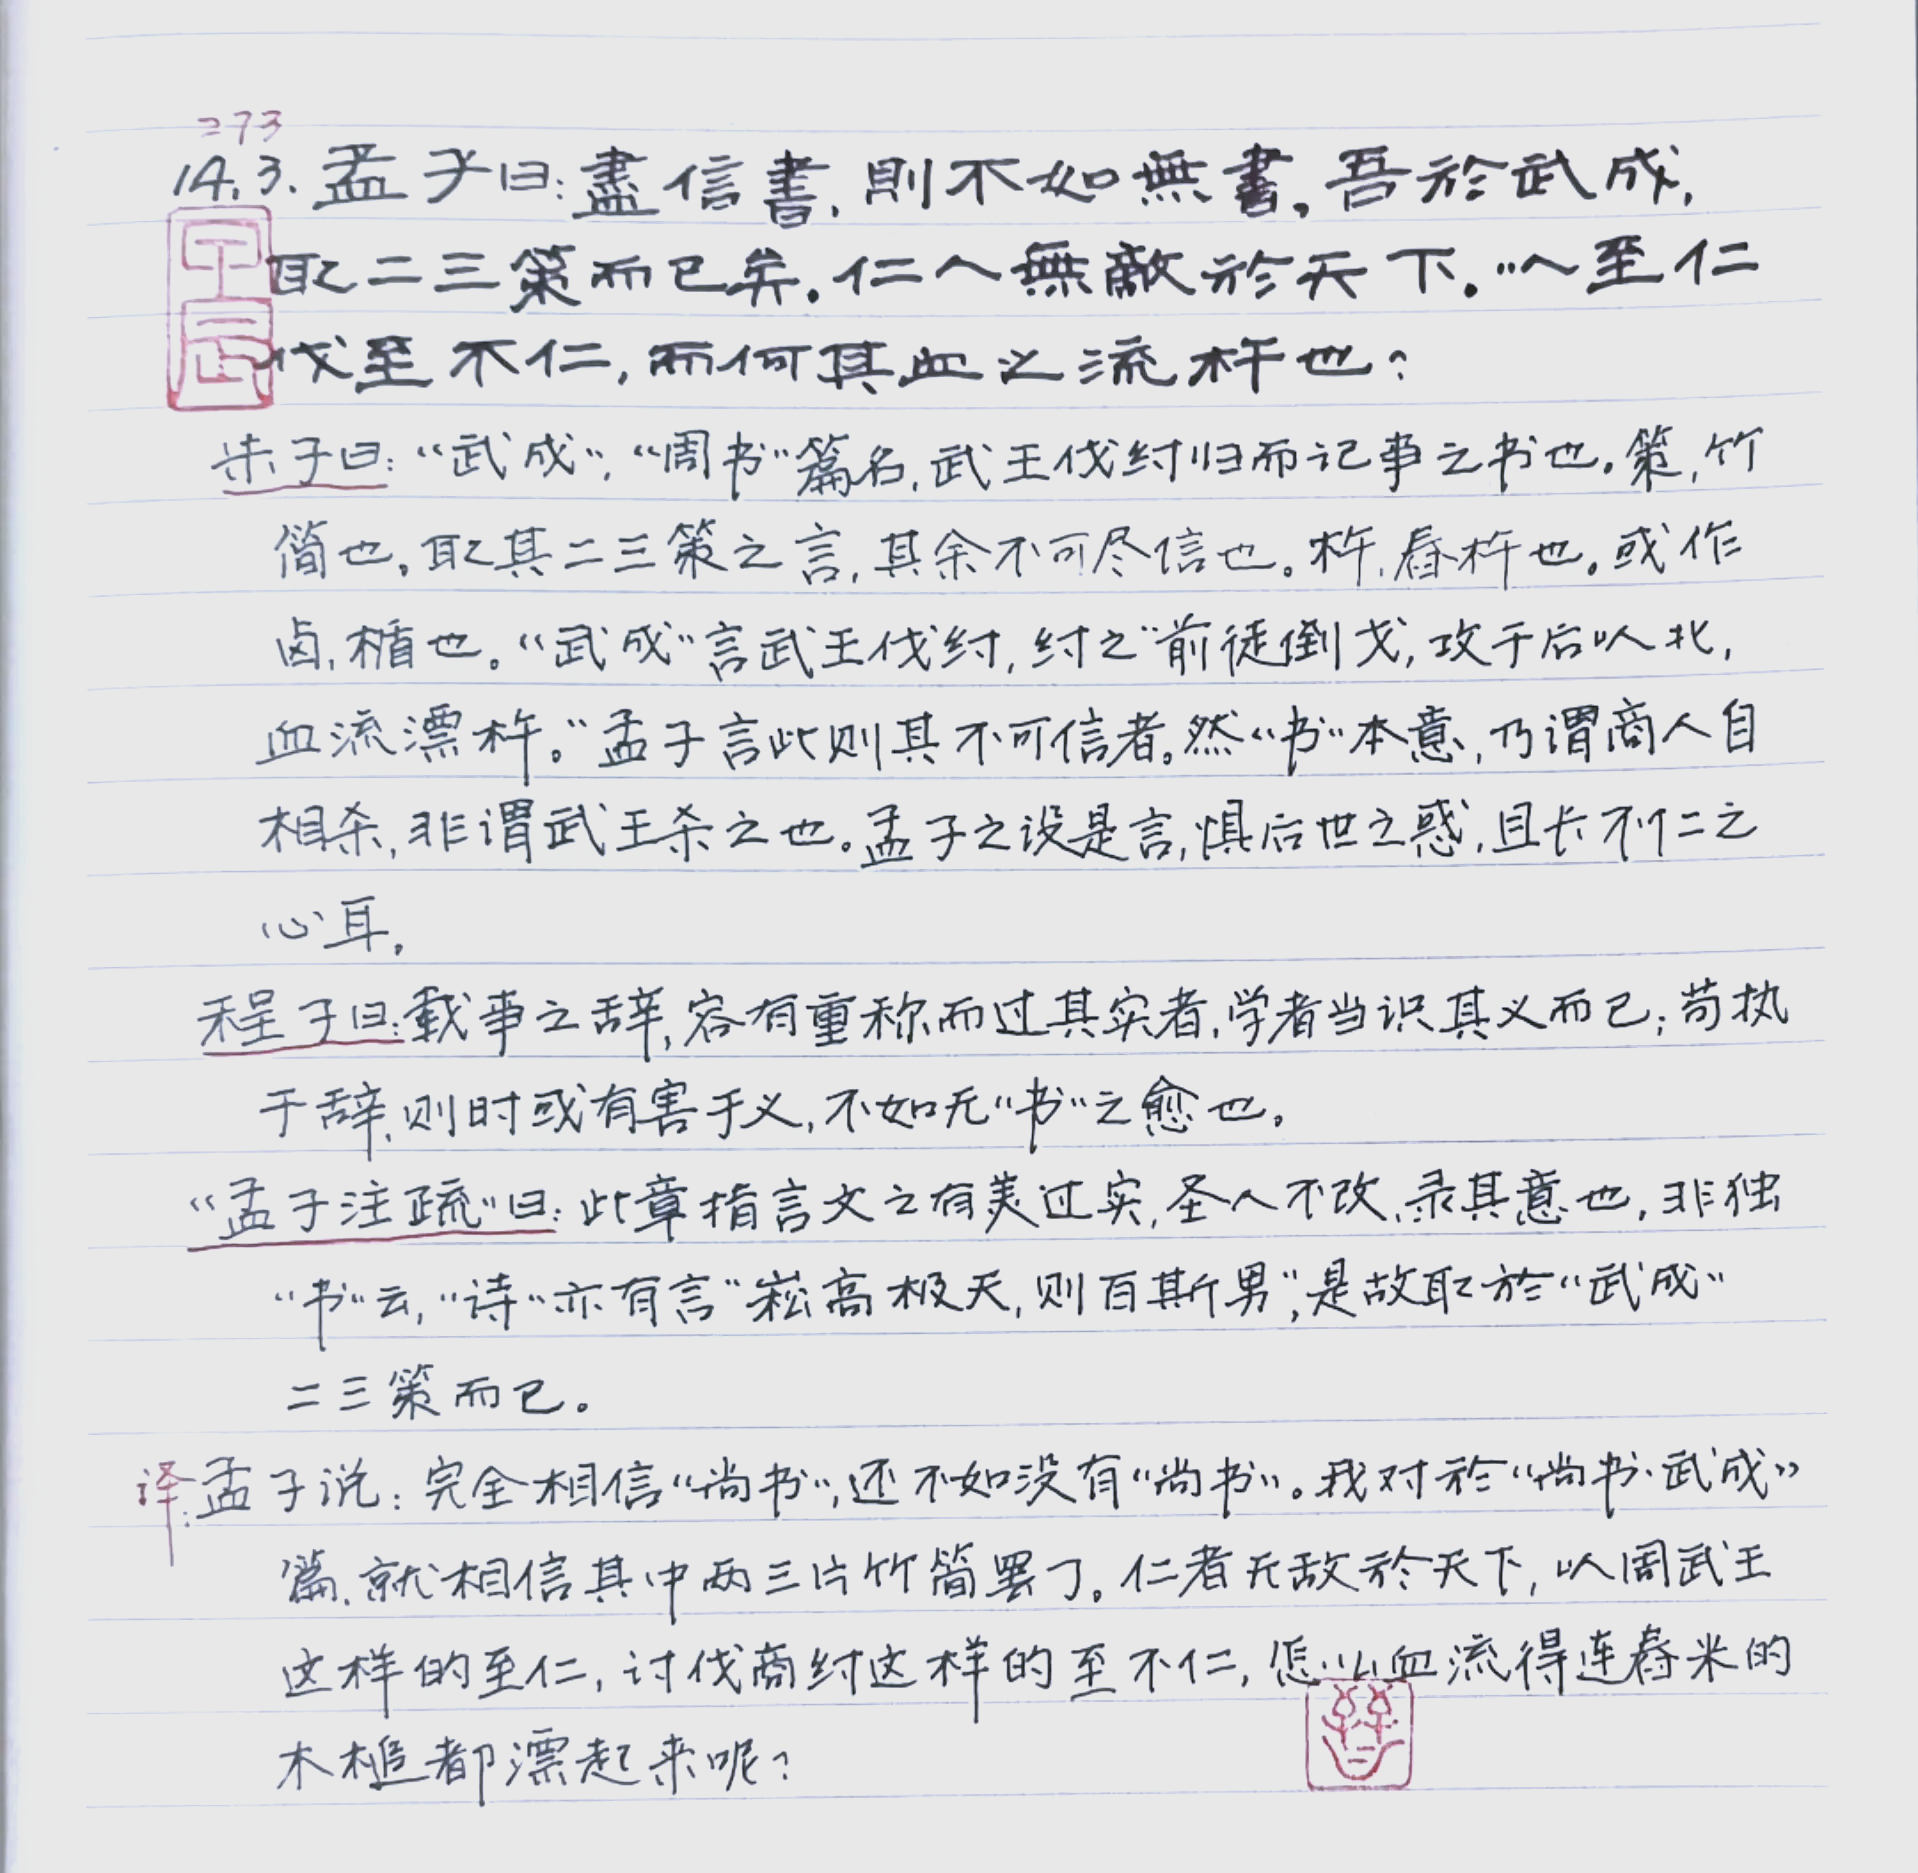 273
14.3.孟子曰:盡信書,則不如無書,吾於武成,
取二三策而已矣.仁人無敵於天下.以至仁
伐至不仁,而何其血之流杵也?
朱子曰:“武成”,“周书”篇名,武王伐纣归而记事之书也.策,竹
简也,取其二三策之言,其余不可尽信也。杵,舂杵也。或作
卤,楯也。“武成”言武王伐纣,纣之“前徒倒戈,攻于后以北,
血流漂杵。”孟子言此则其不可信者。然“书”本意,乃谓商人自
相杀,非谓武王杀之也。孟子之设是言,惧后世之惑,且长不仁之
心耳,
程子曰:载事之辞,容有重称而过其实者,学者当识其义而已;苟执
于辞,则时或有害于义,不如无“书”之愈也,
“孟子注疏”曰:此章指言文之有美过实,圣人不改,录其意也,非独
“书”云,“诗”亦有言“崧高极天,则百斯男”,是故取於“武成”
二三策而已。
译:孟子说:完全相信“尚书”,还不如没有“尚书”。我对於“尚书·武成”
篇,就相信其中两三片竹简罢了。仁者无敌於天下,以周武王
这样的至仁,讨伐商纣这样的至不仁,怎么血流得连舂米的
木槌都漂起来呢?